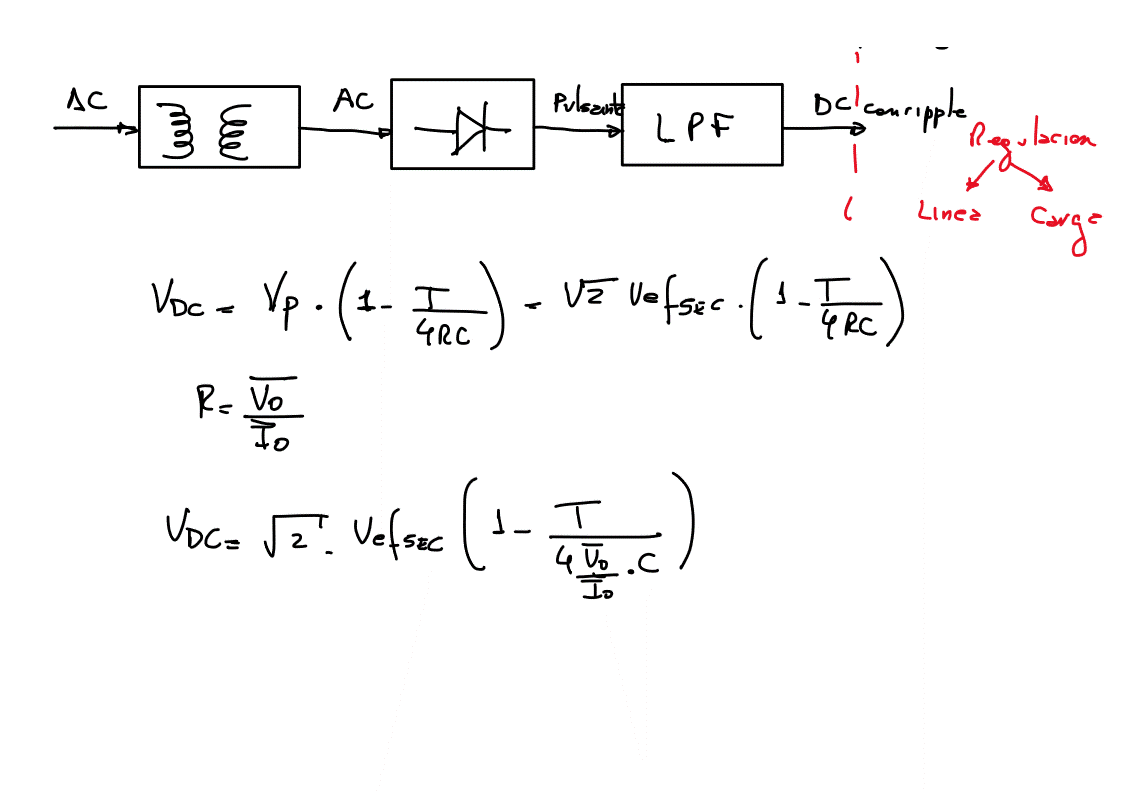 AC AC Pulsante LPF DC con ripple
Regulacion
Linea Carga
V_DC = Vp · (1 - T/4RC) = √2 Vef_SEC · (1 - T/4RC)
R = V̅o/I̅o
V_DC = √2 · Vef_SEC (1 - T/(4 V̅o/I̅o · C))